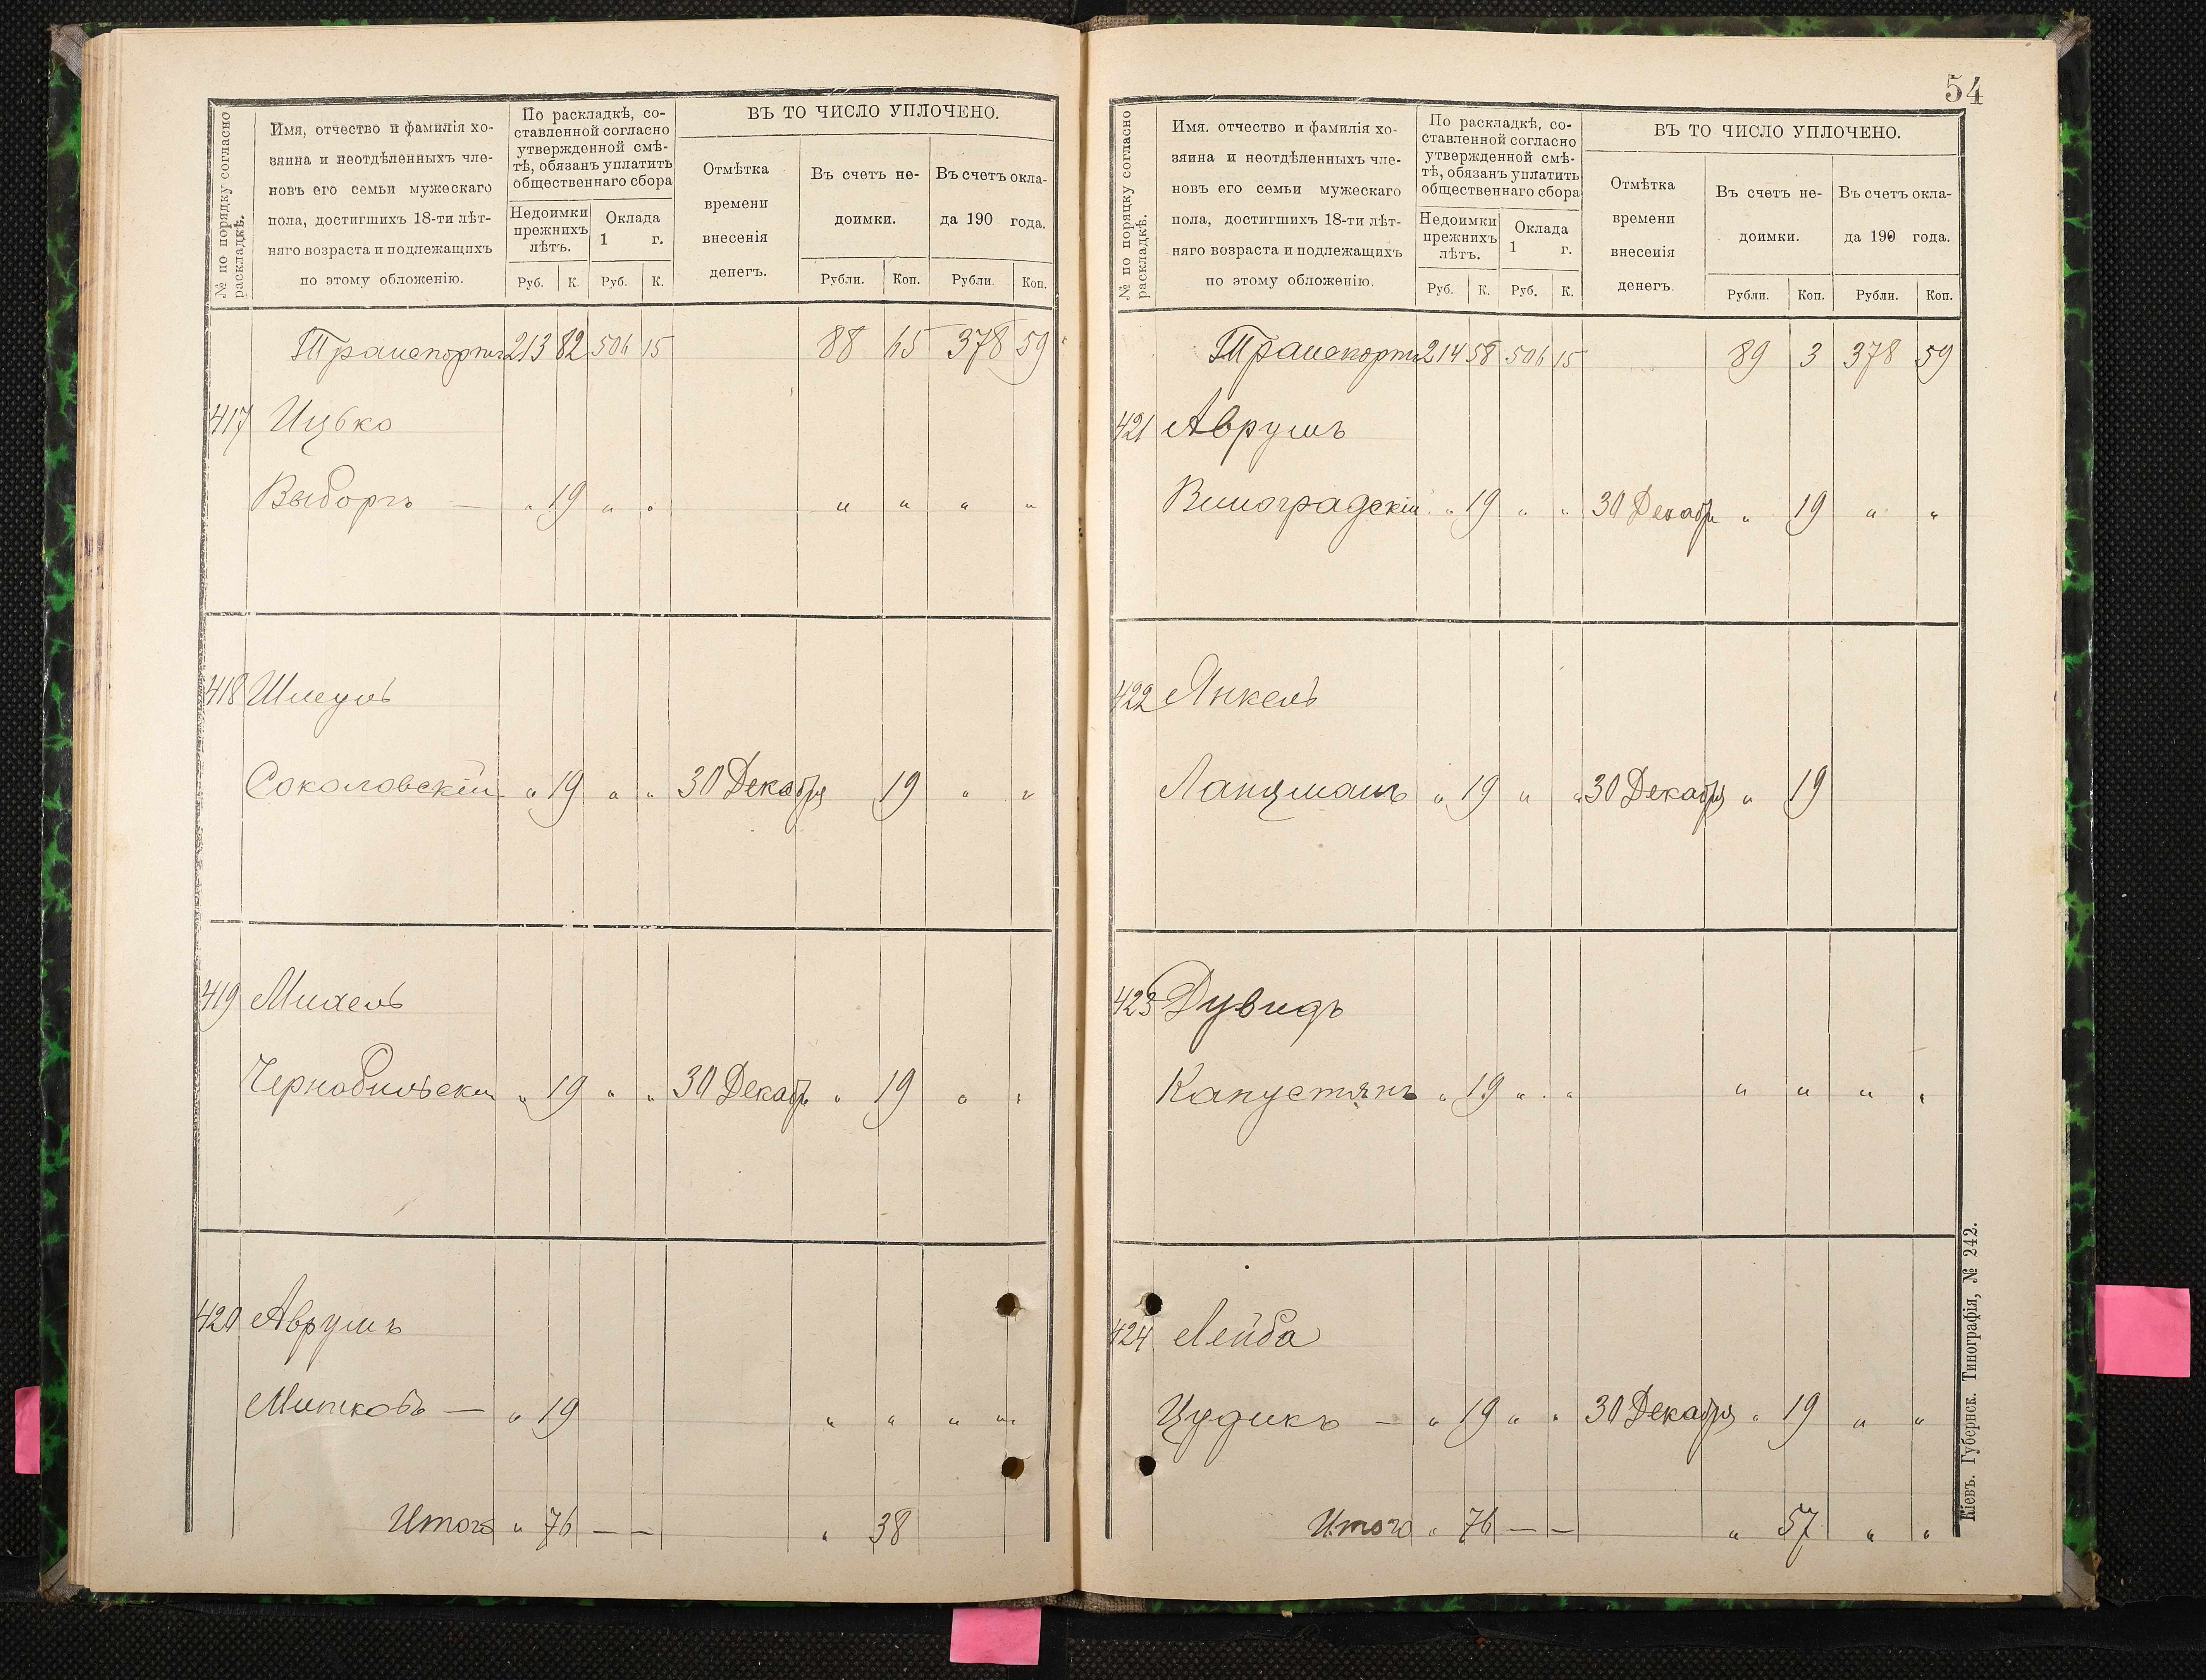 54
№ по порядку согласно раскладкѣ.
Имя, отчество и фамилія хо-
зяина и неотдѣленныхъ чле-
новъ его семьи мужескаго
пола, достигшихъ 18-ти лѣт-
няго возраста и подлежащихъ
по этому обложенію.
По раскладкѣ, со-
ставленной согласно
утвержденной смѣ-
тѣ, обязанъ уплатить
общественнаго сбора
Недоимки прежнихъ лѣтъ.
Оклада 1 г.
Руб. К. Руб. К.
ВЪ ТО ЧИСЛО УПЛОЧЕНО.
Отмѣтка
времени
внесенія
денегъ.
Въ счетъ не-
доимки.
Въ счетъ окла-
да 190 года.
Рубли. Коп. Рубли. Коп.
Транспортъ 213 82 506 15 88 65 378 59
417 Ицько
Выборгъ — " 19 " " " " " "
418 Шмуль
Соколовскій " 19 " " 30 Декабря 19 " "
419 Михель
Чернобильскій " 19 " " 30 Декабр " 19 " "
420 Аврумъ
Митковъ — " 19 " " " "
Итого " 76 — — " 38
№ по порядку согласно раскладкѣ.
Имя. отчество и фамилія хо-
зяина и неотдѣленныхъ чле-
новъ его семьи мужескаго
пола, достигшихъ 18-ти лѣт-
няго возраста и подлежащихъ
по этому обложенію.
По раскладкѣ, со-
ставленной согласно
утвержденной смѣ-
тѣ, обязанъ уплатить
общественнаго сбора
Недоимки прежнихъ лѣтъ.
Оклада 1 г.
Руб. К. Руб. К.
ВЪ ТО ЧИСЛО УПЛОЧЕНО.
Отмѣтка
времени
внесенія
денегъ.
Въ счетъ не-
доимки.
Въ счетъ окла-
да 190 года.
Рубли. Коп. Рубли. Коп.
Транспортъ 214 58 506 15 89 3 378 59
421 Аврумъ
Виноградскій " 19 " " 30 Декабр " 19 " "
422 Янкель
Ланцманъ " 19 " " 30 Декабря " 19
423 Дувидъ
Капустянъ " 19 " " " " " "
424 Лейба
Цудикъ — " 19 " " 30 Декабря " 19 " "
Итого " 76 — — " 57 " "
Кіевъ. Губернск. Типографія, № 242.